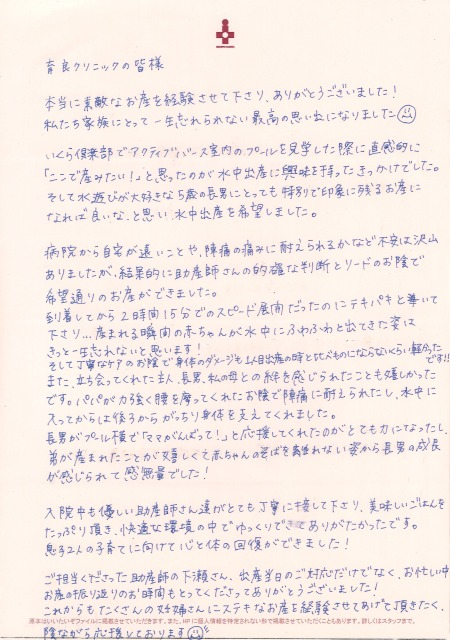 育良クリニックの皆様
本当に素敵なお産を経験させて下さり、ありがとうございました!
私たち家族にとって一生忘れられない最高の思い出になりました
いくら倶楽部でアクティブバース室内のプールを見学した際に直感的に
「ここで産みたい!」と思ったのが水中出産に興味を持ったきっかけでした。
そして水遊びが大好きな5歳の長男にとっても特別で印象に残るお産に
なれば良いな、と思い水中出産を希望しました。
病院から自宅が遠いことや、陣痛の痛みに耐えられるかなど不安は沢山
ありましたが、結果的に助産師さんの的確な判断とリードのお陰で
希望通りのお産ができました。
到着してから2時間15分でのスピード展開だったのにテキパキと導いて
下さり…産まれる瞬間の赤ちゃんが水中にふわふわと出てきた姿は
きっと一生忘れないと思います!
そして丁寧なケアのお陰で身体のダメージも1人目出産の時と比べものにならないくらい軽かったです!!
また、立ち会ってくれた主人、長男、私の母との絆を感じられたことも嬉しかった
です。パパが力強く腰を摩ってくれたお陰で陣痛に耐えられたし、水中に
入ってからは後ろからがっちり身体を支えてくれました。
長男がプール横で「ママがんばって!」と応援してくれたのがとても力になったし、
弟が産まれたことが嬉しくて赤ちゃんのそばを離れない姿から長男の成長
が感じられて感無量でした!
入院中も優しい助産師さん達がとても丁寧に接して下さり、美味しいごはんを
たっぷり頂き、快適な環境の中でゆっくりできてありがたかったです。
息子2人の子育てに向けて心と体の回復ができました!
ご担当くださった助産師の下瀬さん、出産当日のご対応だけでなく、お忙しい中
お産の振り返りのお時間もとってくださってありがとうございました!
これからもたくさんの妊婦さんにステキなお産を経験させてあげて頂きたく、
原本はいいたいぞファイルに掲載させていただきます。また、HPに個人情報を特定されない形で掲載させていただくこともあります。詳しくはスタッフまで。
陰ながら応援しております